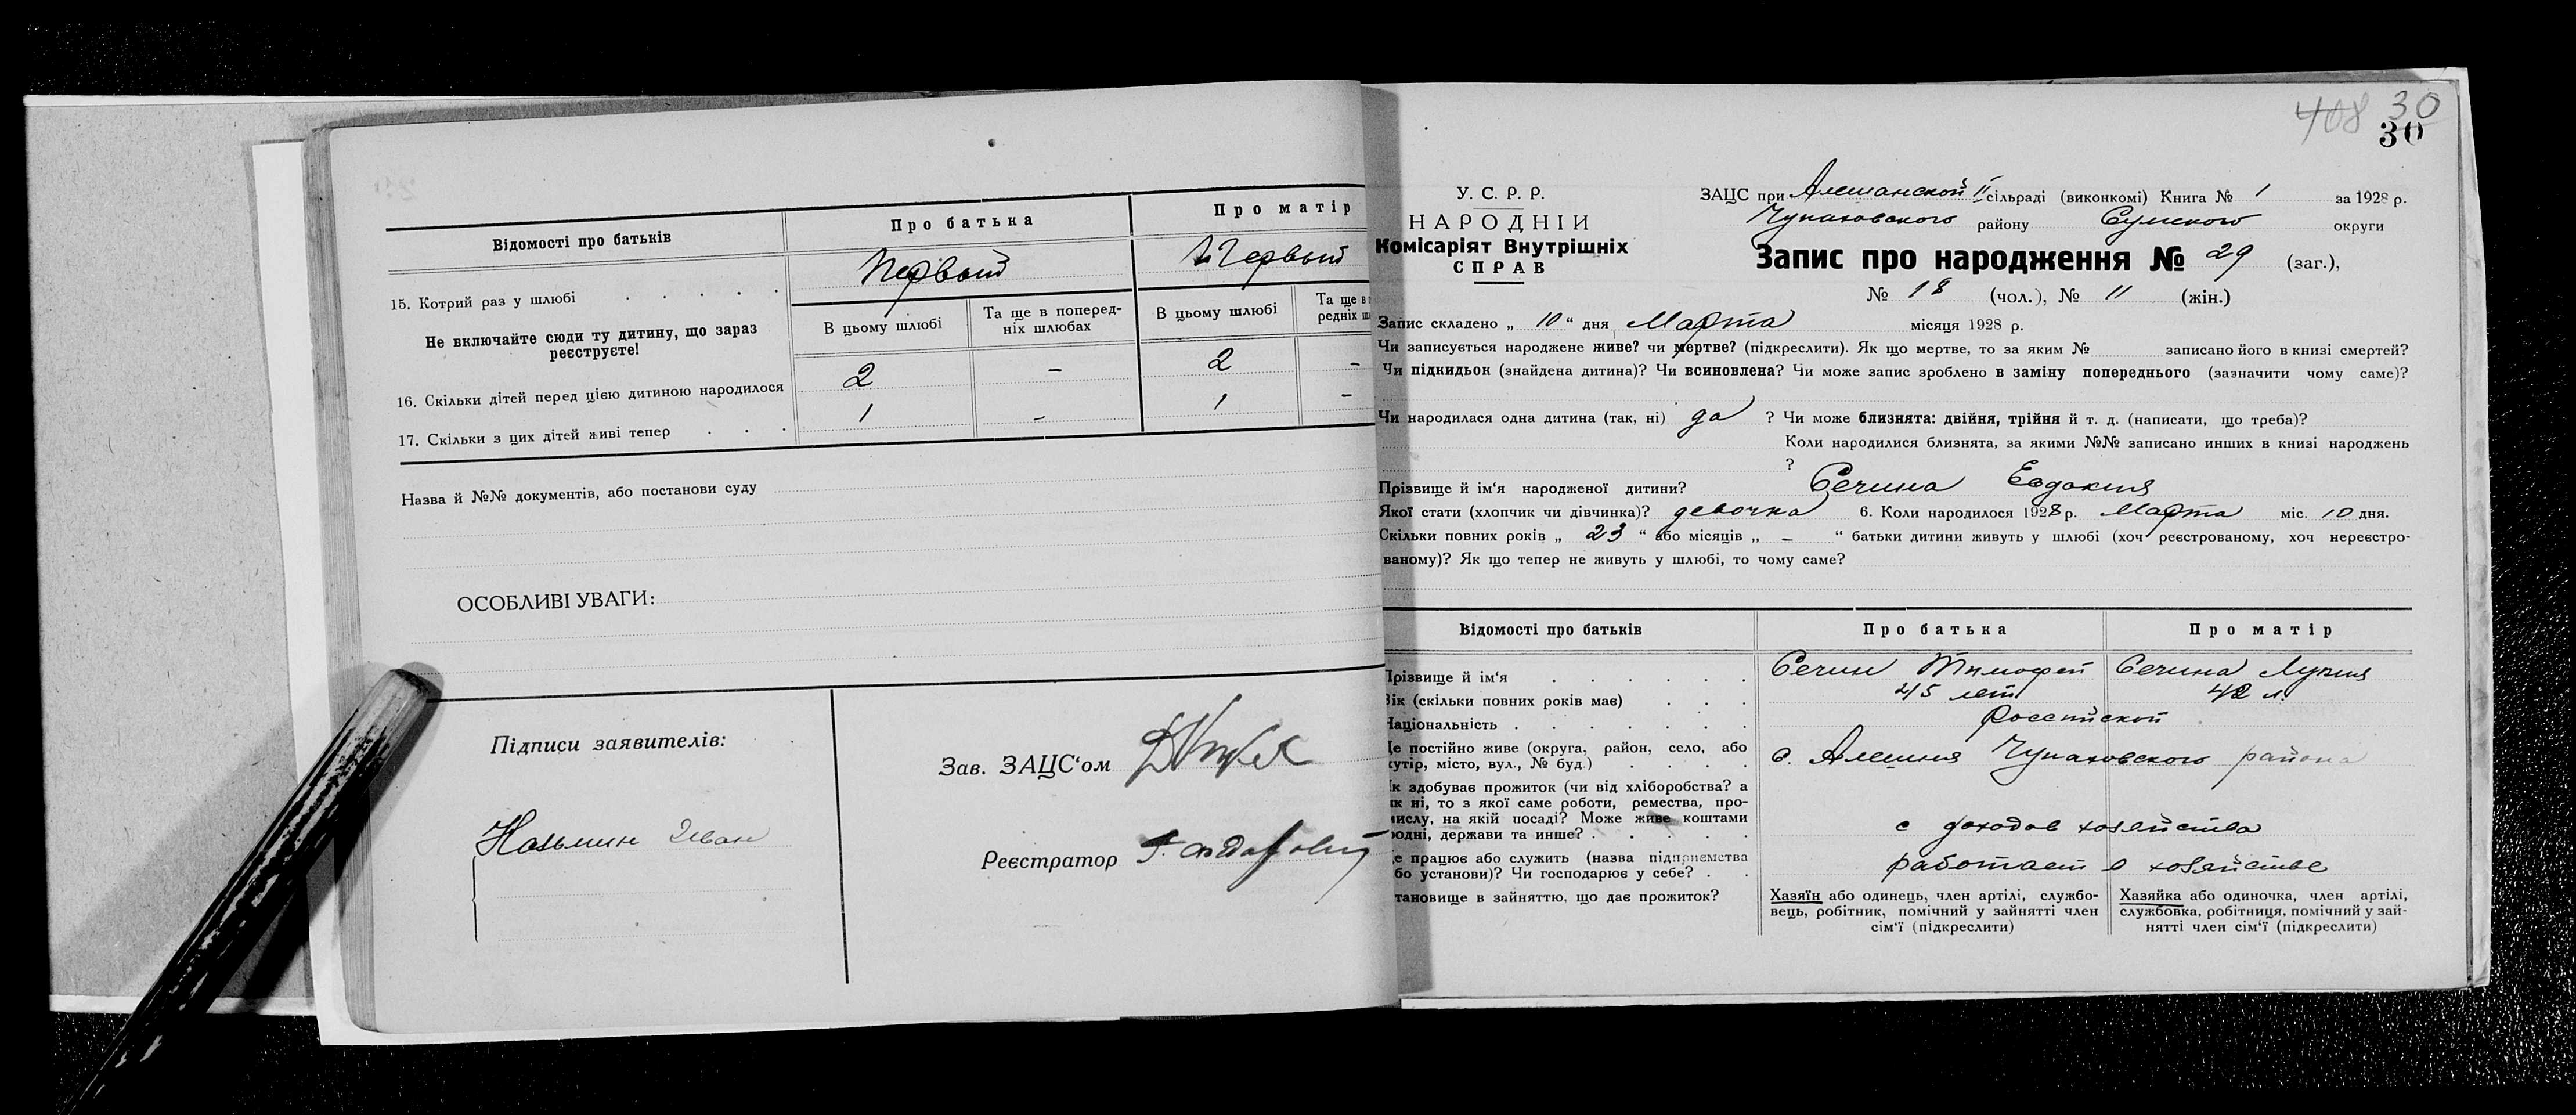 Відомості про батьків
Про батька
Про матір
15. Котрий раз у шлюбі
Первый
Первый
Не включайте сюди ту дитину, що зараз
реєструєте!
В цьому шлюбі
Та ще в поперед-
ніх шлюбах
В цьому шлюбі
Та ще в
редніх ш
16. Скільки дітей перед цією дитиною народилося
2
–
2
–
17. Скільки з цих дітей живі тепер
1
–
1
–
Назва й №№ документів, або постанови суду
ОСОБЛИВІ УВАГИ:
Підписи заявителів:
Иван
Зав. ЗАЦС'ом
Реєстратор
408 30
30
У. С. Р. Р.
НАРОДНІЙ
Комісаріят Внутрішніх
СПРАВ
ЗАЦС при Алешанской II сільраді (виконкомі) Книга № 1 за 1928 р.
Чупаховского району Сумского округи
Запис про народження № 29 (заг.),
№ 18 (чол.), № 11 (жін.)
Запис складено „ 10 “ дня Марта місяця 1928 р.
Чи записується народжене живе? чи мертве? (підкреслити). Як що мертве, то за яким № записано його в книзі смертей?
Чи підкидьок (знайдена дитина)? Чи всиновлена? Чи може запис зроблено в заміну попереднього (зазначити чому саме)?
Чи народилася одна дитина (так, ні) да ? Чи може близнята: двійня, трійня й т. д. (написати, що треба)?
Коли народилися близнята, за якими №№ записано инших в книзі народжень
?
Прізвище й ім'я народженої дитини? Сечина Евдокия
Якої стати (хлопчик чи дівчинка)? девочка 6. Коли народилося 1928 р. Марта міс. 10 дня.
Скільки повних років „ 23 “ або місяців „ – “ батьки дитини живуть у шлюбі (хоч реєстрованому, хоч нереєстро-
ваному)? Як що тепер не живуть у шлюбі, то чому саме?
Відомості про батьків
Про батька
Про матір
Прізвище й ім'я
Сечин Тимофей
Сечина Лукия
Вік (скільки повних років має)
45 лет
42 л.
Національність
Российской
Де постійно живе (округа, район, село, або
хутір, місто, вул., № буд.)
с. Алешня Чупаховского района
Як здобуває прожиток (чи від хліборобства? а
як ні, то з якої саме роботи, ремества, про-
мислу, на якій посаді? Може живе коштами
родні, держави та инше?
с доходов хозяйства
Де працює або служить (назва підприємства
або установи)? Чи господарює у себе?
работает в хозяйстве
становище в зайняттю, що дає прожиток?
Хазяїн або одинець, член артілі, службо-
вець, робітник, помічний у зайнятті член
сім'ї (підкреслити)
Хазяйка або одиночка, член артілі,
службовка, робітниця, помічний у зай-
нятті член сім'ї (підкреслити)